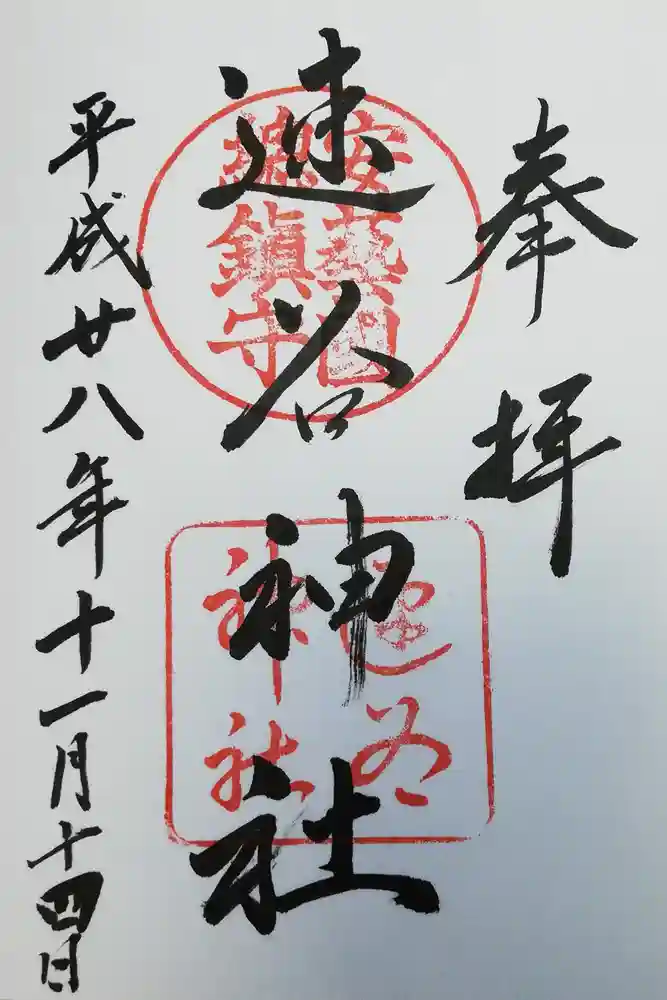 奉拝
安藝國
総鎮守
速谷神社
速谷
神社
平成廿八年十一月十四日